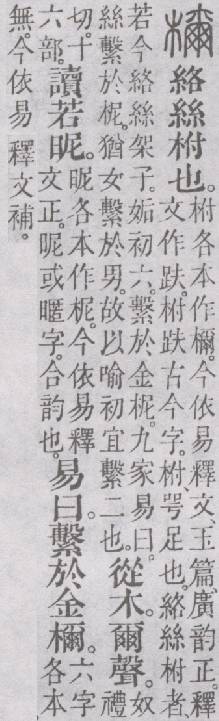 檷絡絲柎也。柎各本作檷。今依易釋文、玉篇、廣韵正。釋
文作趺。柎趺古今字。柎、咢足也。絡絲柎者、
若今絡絲架子。姤初六。繫於金柅。九家易曰。
絲繫於柅。猶女繫於男。故以喻初宜繫二也。從木。爾聲。奴禮
切。十六部。讀若昵。昵各本作柅。今依易釋
文正。昵或暱字。合韵也。易曰。繫於金檷。六字各本
無。今依易釋文補。